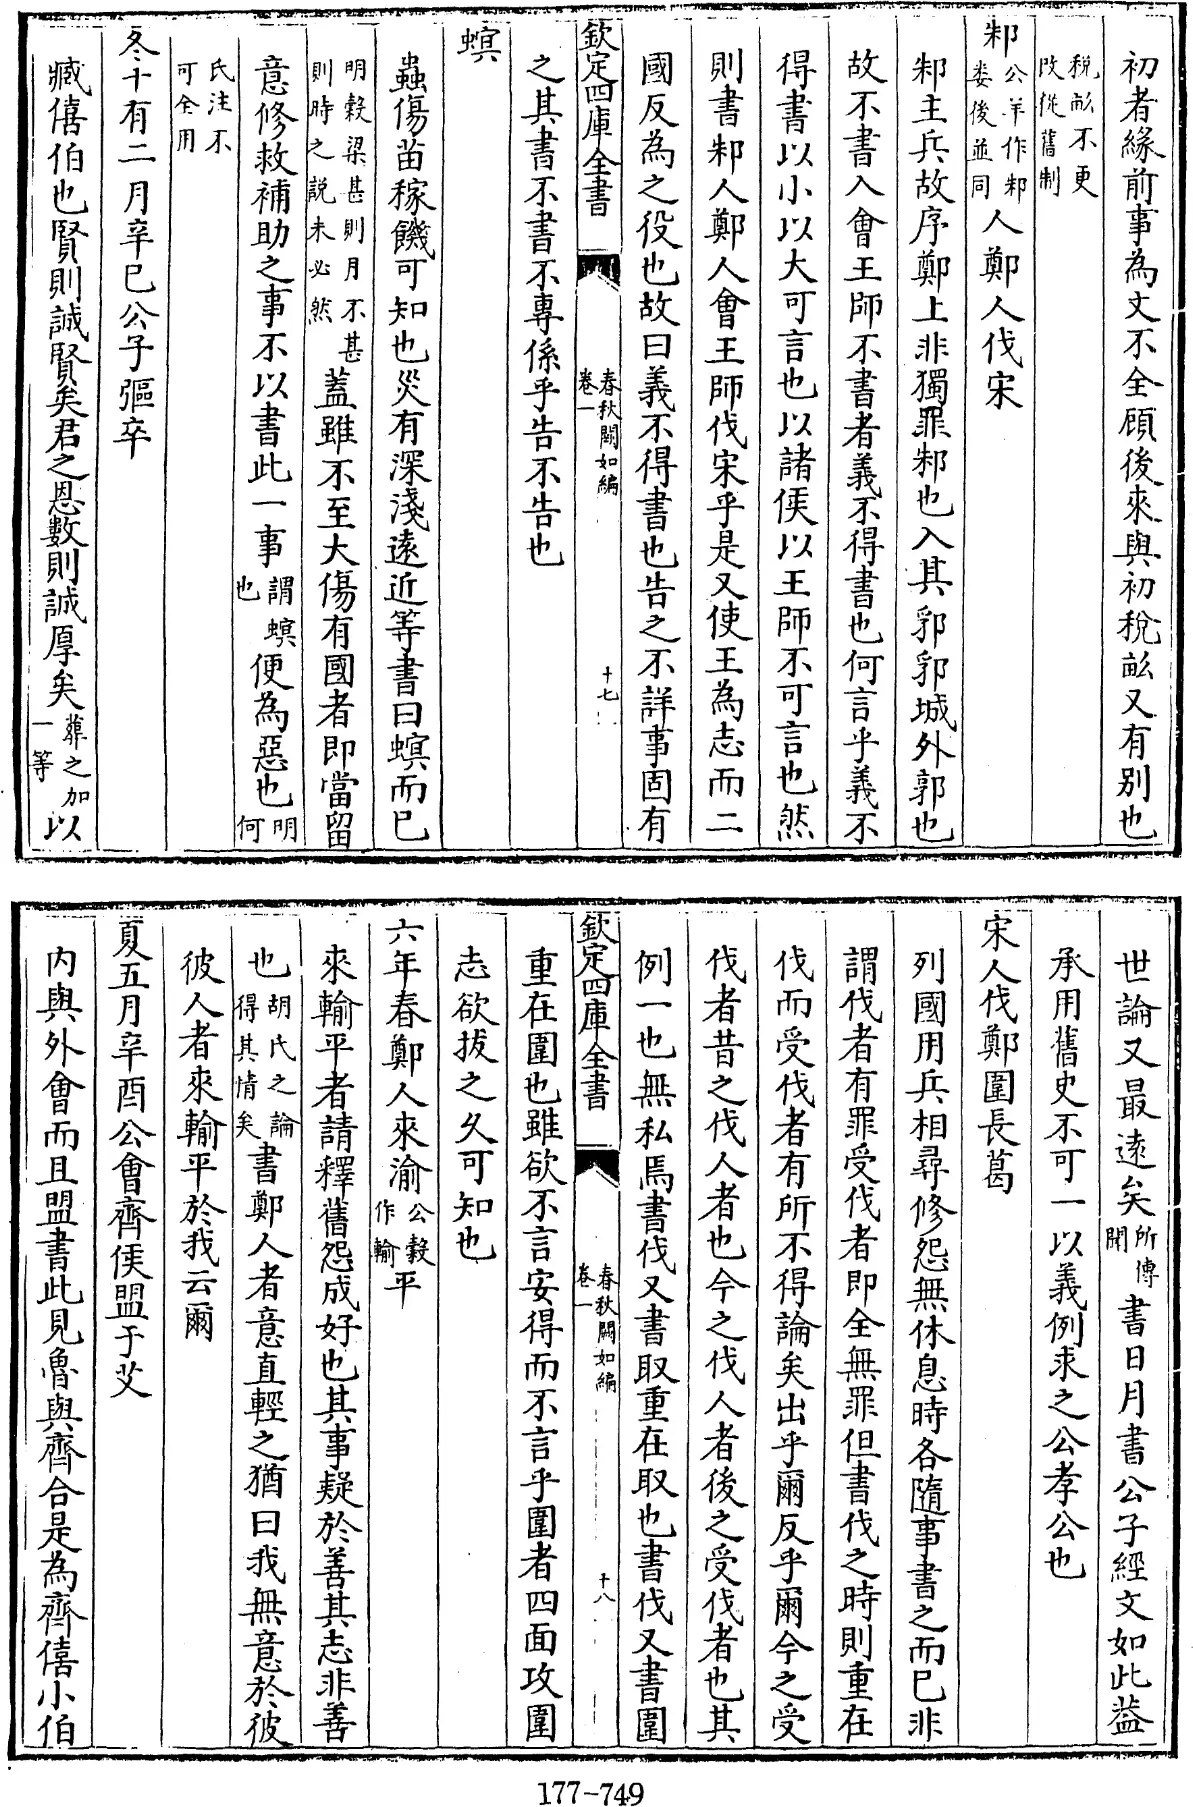 初者緣前事為文不全顧後來與初稅畝又有別也
稅畝不更
改從舊制
邾公羊作邾婁後並同人鄭人伐宋
邾主兵故序鄭上非獨罪邾也入其郛郛城外郭也
故不書入會王師不書者義不得書也何言乎義不
得書以小以大可言也以諸侯以王師不可言也然
則書邾人鄭人會王師伐宋乎是又使王為志而二
國反為之役也故曰義不得書也告之不詳事固有
欽定四庫全書 春秋闕如編 卷一 十七
之其書不書不專係乎告不告也
螟
蟲傷苗稼饑可知也災有深淺遠近等書曰螟而已
明穀梁甚則月不甚則時之說未必然蓋雖不至大傷有國者即當留
意修救補助之事不以書此一事謂螟也便為惡也明何
氏注不
可全用
冬十有二月辛巳公子彄卒
臧僖伯也賢則誠賢矣君之恩數則誠厚矣葬之加一等以
世論又最遠矣所傳聞書日月書公子經文如此益
承用舊史不可一以義例求之公孝公也
宋人伐鄭圍長葛
列國用兵相尋修怨無休息時各隨事書之而已非
謂伐者有罪受伐者即全無罪但書伐之時則重在
伐而受伐者有所不得論矣出乎爾反乎爾今之受
伐者昔之伐人者也今之伐人者後之受伐者也其
例一也無私焉書伐又書取重在取也書伐又書圍
欽定四庫全書 春秋闕如編 卷一 十八
重在圍也雖欲不言安得而不言乎圍者四面攻圍
志欲拔之久可知也
六年春鄭人來渝公穀作輸平
來輸平者請釋舊怨成好也其事疑於善其志非善
也胡氏之論得其情矣書鄭人者意直輕之猶曰我無意於彼
彼人者來輸平於我云爾
夏五月辛酉公會齊侯盟于艾
内與外會而且盟書此見魯與齊合是為齊僖小伯
177-749